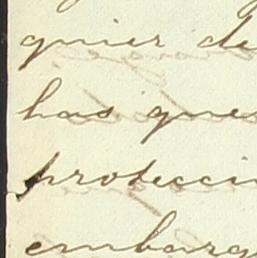 quier de
has que
protecci
embarg